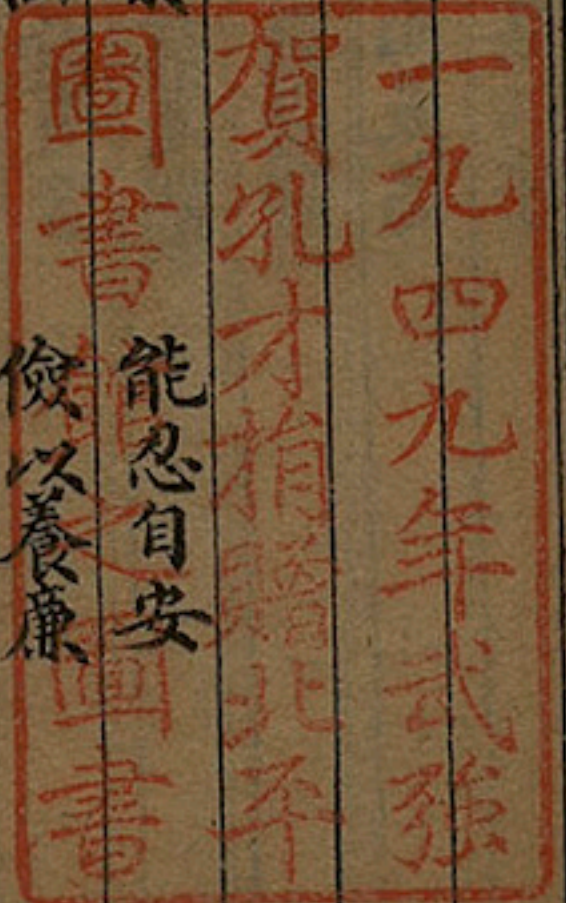 一九四九年武強
賀孔才捐贈北平
圖書館之圖書
能忍自安
儉以養廉